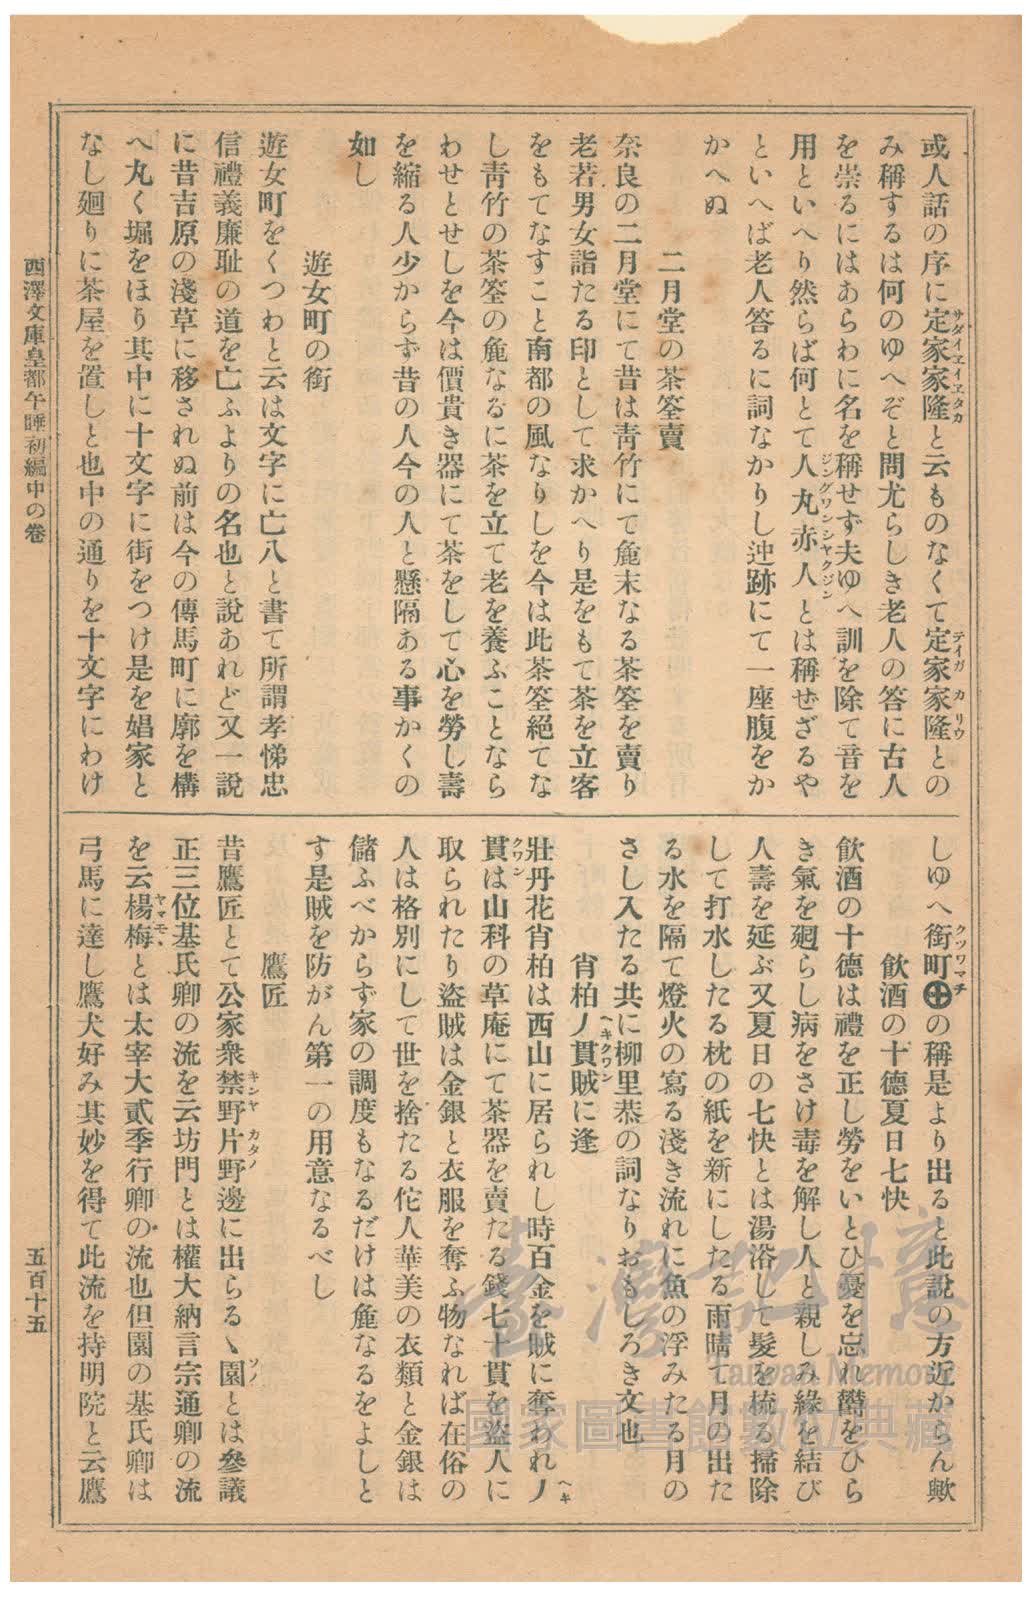 或人話の序に定家家隆と云ものなくて定家家隆との
サダイヱイヱタカ
テイガカリウ
み稱するは何のゆへぞと問尤らしき老人の答に古人
を崇るにはあらわに名を稱せず夫ゆへ訓を除て音を
用といへり然らば何とて人丸赤人とは稱せざるや
ジングワンシヤクジン
といへば老人答るに詞なかりし迚跡にて一座腹をか
かへぬ
二月堂の茶筌賣
奈良の二月堂にて昔は靑竹にて麁末なる茶筌を賣り
老若男女詣たる印として求かへり是をもて茶を立客
をもてなすこと南都の風なりしを今は此茶筌絕てな
し靑竹の茶筌の麁なるに茶を立て老を養ふことなら
わせとせしを今は價貴き器にて茶をして心を勞し壽
を縮る人少からず昔の人今の人と懸隔ある事かくの
如し
遊女町の銜
遊女町をくつわと云は文字に亡八と書て所謂孝悌忠
信禮義廉耻の道を亡ふよりの名也と說あれど又一說
に昔吉原の淺草に移されぬ前は今の傳馬町に廓を構
へ丸く堀をほり其中に十文字に街をつけ是を娼家と
なし廻りに茶屋を置しと也中の通りを十文字にわけ
しゆへ銜町の稱是より出ると此說の方近からん歟
クツワマチ
飮酒の十德夏日七快
飮酒の十德は禮を正し勞をいとひ憂を忘れ鬱をひら
き氣を廻らし病をさけ毒を解し人と親しみ緣を結び
人壽を延ぶ又夏日の七快とは湯浴して髮を梳る掃除
して打水したる枕の紙を新にしたる雨晴て月の出た
る水を隔て燈火の寫る淺き流れに魚の浮みたる月の
さし入たる共に柳里恭の詞なりおもしろき文也
肖柏ノ貫賊に逢
ヘキクワン
壯丹花肖柏は西山に居られし時百金を賊に奪われノ
ヘキ
貫は山科の草庵にて茶器を賣たる錢七十貫を盜人に
クワン
取られたり盜賊は金銀と衣服を奪ふ物なれば在俗の
人は格別にして世を捨たる佗人華美の衣類と金銀は
儲ふべからず家の調度もなるだけは麁なるをよしと
す是賊を防がん第一の用意なるべし
鷹匠
昔鷹匠とて公家衆禁野片野邊に出らるゝ園とは參議
キンヤ カタノ
ソノ
正三位基氏卿の流を云坊門とは權大納言宗通卿の流
を云楊梅とは太宰大貳季行卿の流也但園の基氏卿は
ヤマモヽ
弓馬に達し鷹犬好み其妙を得て此流を持明院と云鷹
西澤文庫皇都午睡初編中の卷
五百十五
臺灣記憶
Taiwan Memory
國家圖書館數位典藏